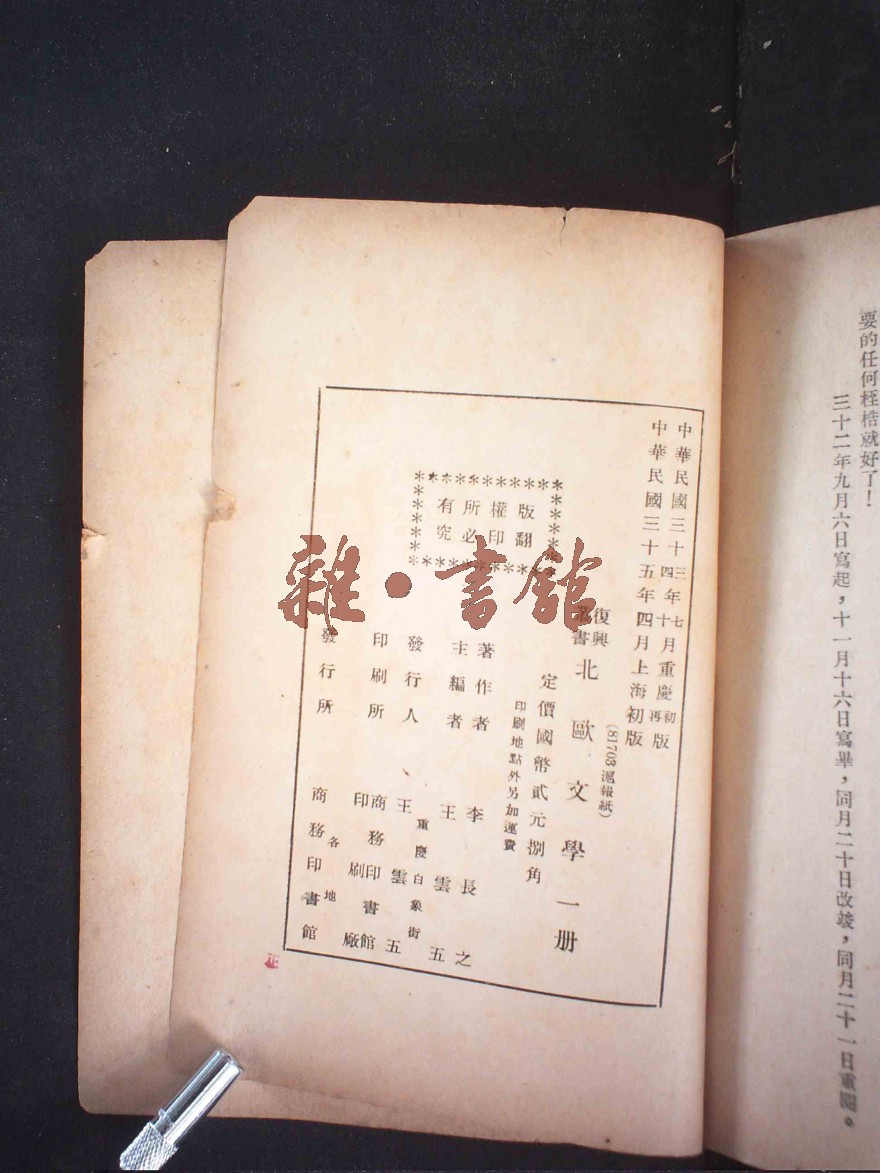 要的任何桎梏就好了！
三十二年九月六日寫起，十一月十六日寫畢，同月二十日改竣，同月二十一日重閱。
中華民國三十三年七月重慶初版
中華民國三十四年十月重慶再版
中華民國三十五年四月上海初版
(81703滬報紙)
復興叢書 北歐文學一册
定價國幣貳元捌角
印刷地點外另加運費
著作者 李長之
主編者 王雲五
重慶白象街
發行人 王雲五
印刷所 商務印書館印刷廠
各地
發行所 商務印書館
版權所有
翻印必究
雜·書館